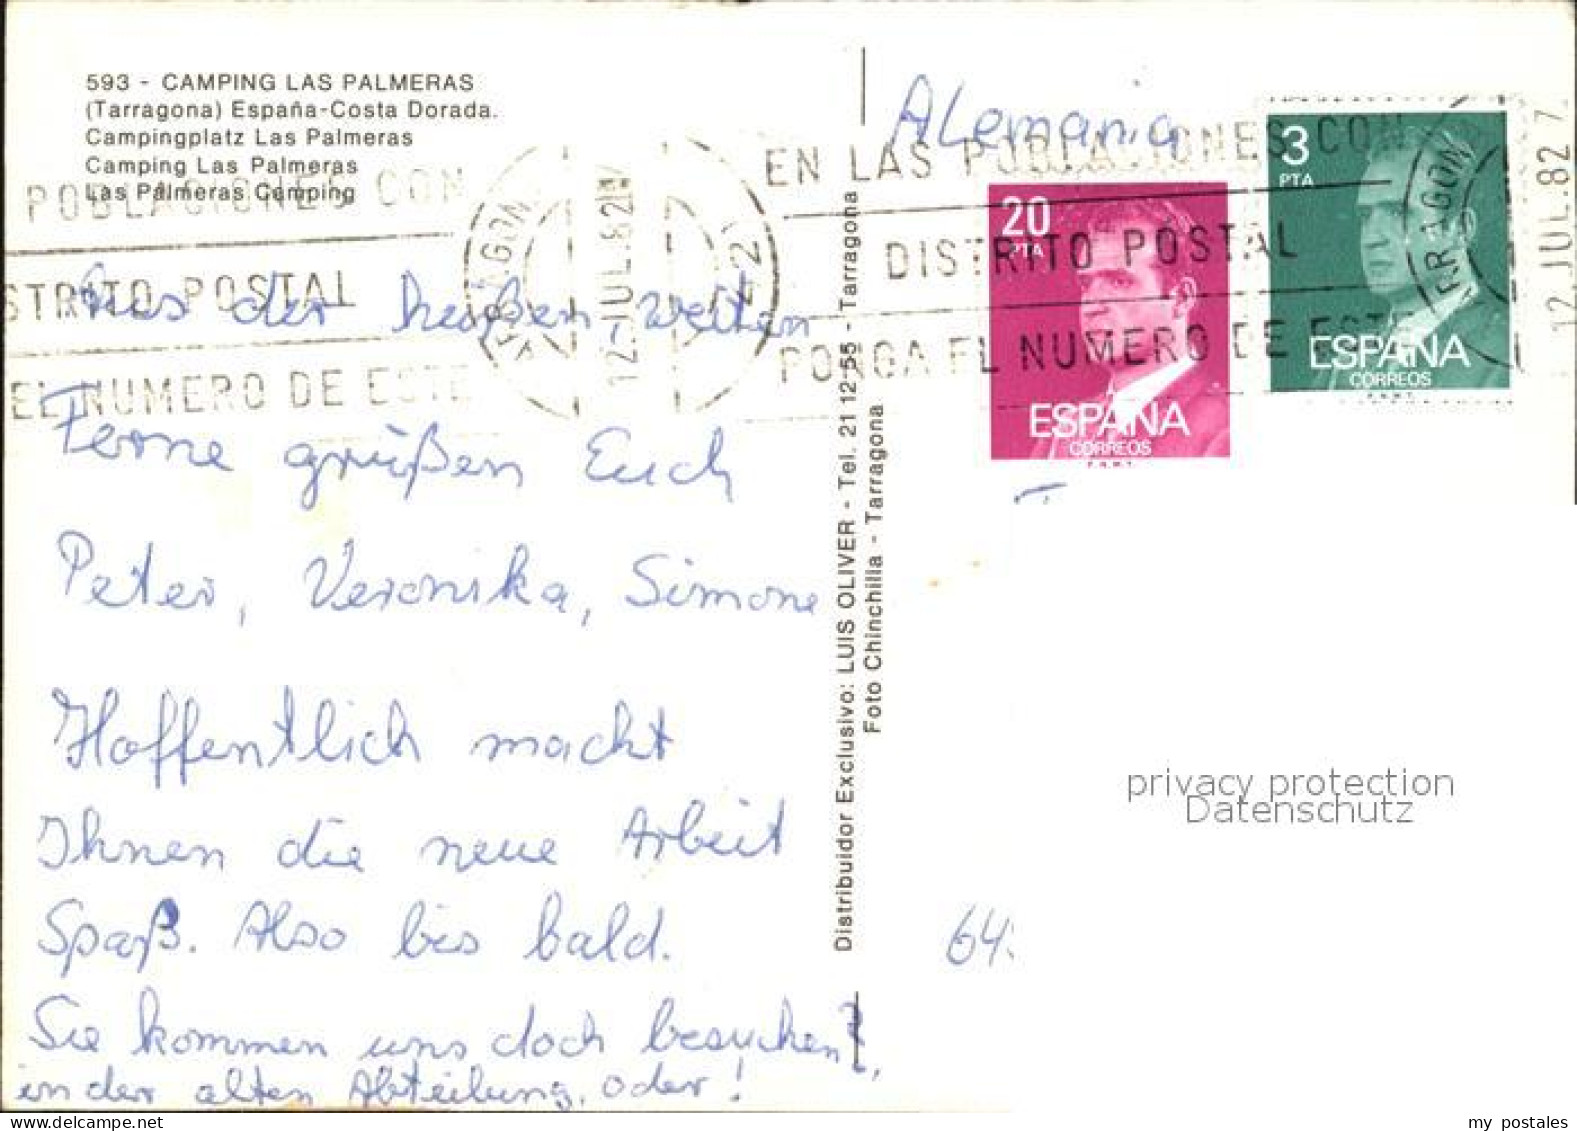 593 - CAMPING LAS PALMERAS
(Tarragona) España-Costa Dorada.
Campingplatz Las Palmeras
Camping Las Palmeras
Las Palmeras Camping
POBLACIONES CON
STRITO POSTAL
EL NUMERO DE ESTE
12 JUL. 82
Aus der heißen weiten
Ferne grüßen Euch
Peter, Veronika, Simone
Hoffentlich macht
Ihnen die neue Arbeit
Spaß. Also bis bald.
Sie kommen uns doch besuchen?,
in der alten Abteilung, oder!
Distribuidor Exclusivo: LUIS OLIVER - Tel. 21 12 55 - Tarragona
Foto Chinchilla - Tarragona
Alemania
EN LAS POBLACIONES CON
DISTRITO POSTAL
PONGA EL NUMERO DE ESTE
20
PTA
ESPAÑA
CORREOS
F.N.M.T.
3
PTA
ESPAÑA
CORREOS
F.N.M.T.
12 JUL. 82
privacy protection
Datenschutz
64
my postales